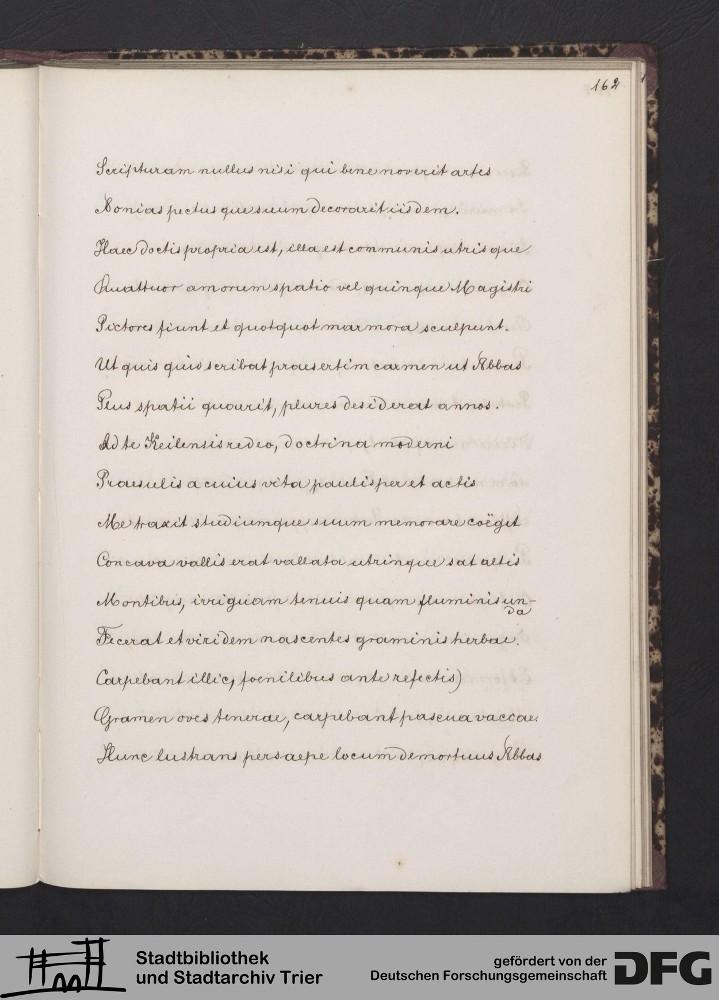 162
Scripturam nullus nisi qui bene noverit artes
Aonias pectusque suum decorarit iisdem.
Haec doctis propria est, illa est communis utrisque
Quattuor amorum spatio vel quinque Magistri
Pictores fiunt et quotquot marmora sculpunt.
Ut quis quid scribat praesertim carmen ut Abbas
Plus spatii quaerit, plures desiderat annos.
Ad te Keilensis redeo, doctrina moderni
Praesulis a cuius vita paulisper et actis
Me traxit studiumque suum memorare coëgit
Concava vallis erat vallata utrinque sat altis
Montibus, irriguam tenuis quam fluminis un-
da
Fecerat et viridem nascentes graminis herbae.
Carpebant illic, foenilibus ante refectis)
Gramen oves tenerae, carpebant pascua vaccae.
Hunc lustrans persaepe locum demortuus Abbas
Stadtbibliothek
und Stadtarchiv Trier
gefördert von der
Deutschen Forschungsgemeinschaft
DFG